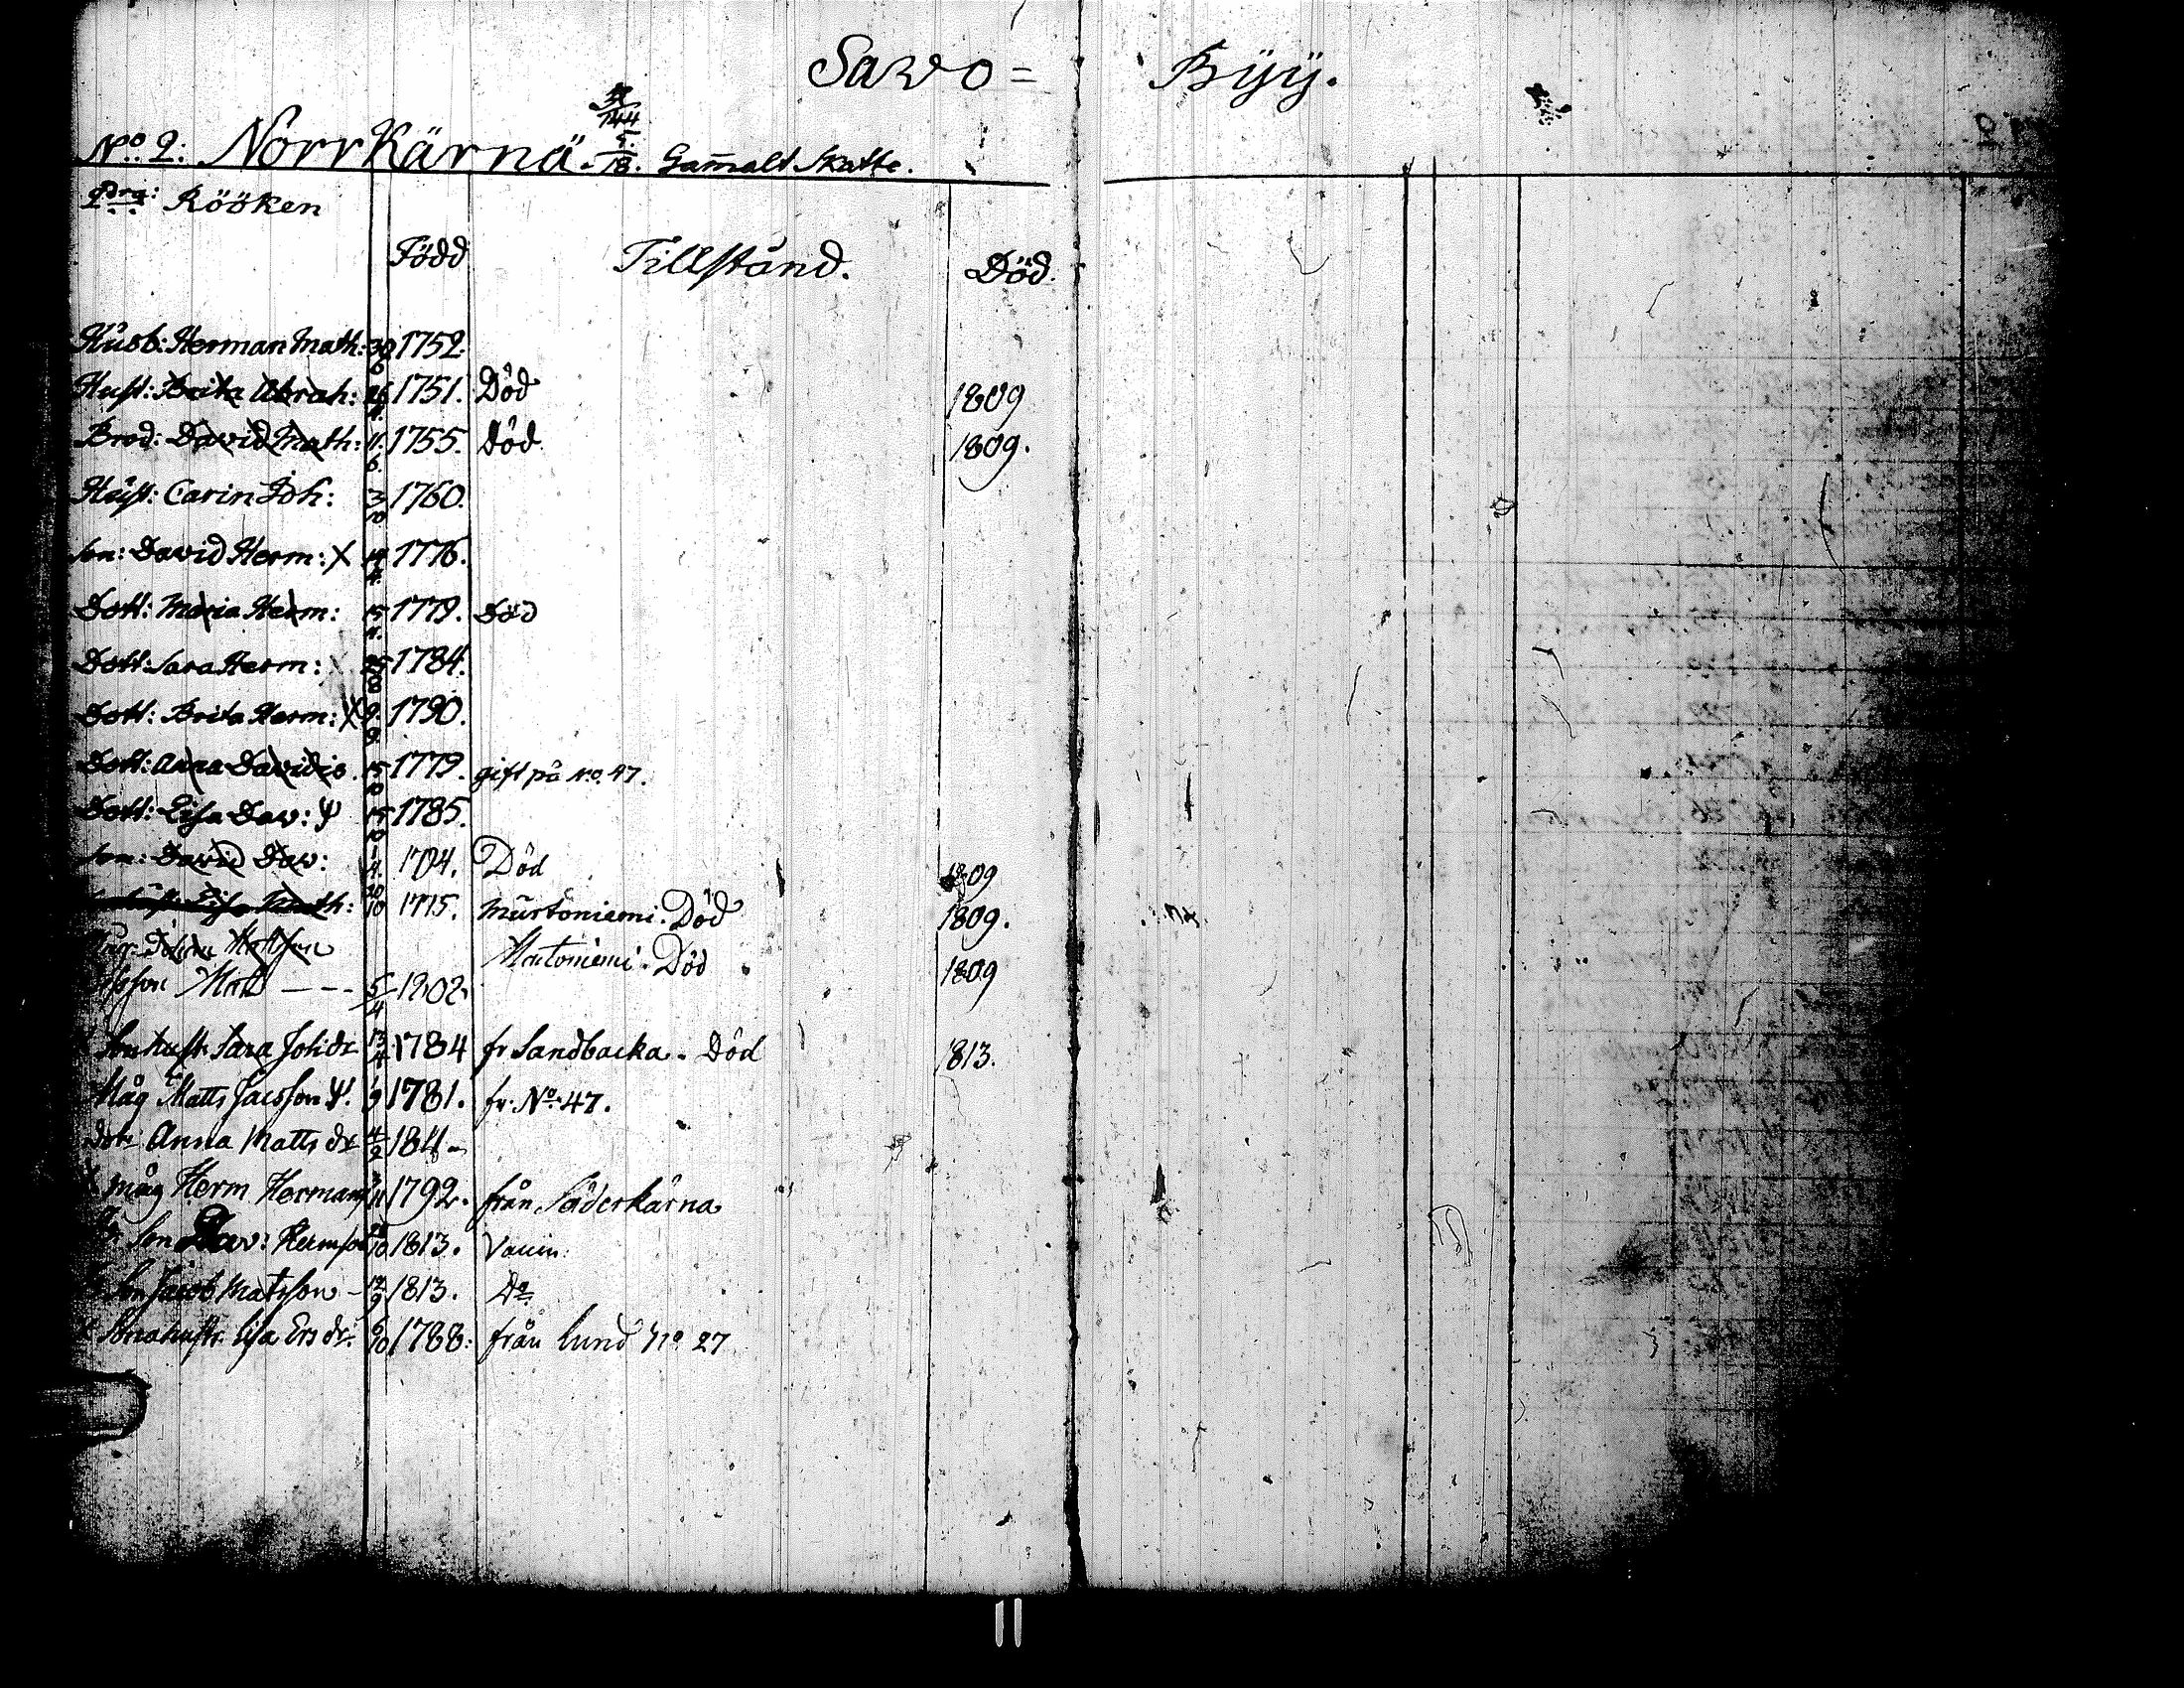 Sawo = Byÿ.
37/144
No: 2: Norrkärnä. 5/18. Gam̄alt Skatte.
2dra: Rööken
Född Tillstånd. Död.
Husb: Herman Math: 30/6 1752.
Hust: Brita Abrah: 26/11 1751. Död 1809
Brod: David Math: 11/6. 1755. Död 1809.
Hust: Carin Joh: 3/10 1760.
Son: David Herm: X 14/4. 1776.
Dott: Maria Herm: 15/11. 1779. Död
Dott: Sara Herm: 25/8 1784.
Dott: Brita Herm: 9/9. 1790.
Dott: Anna Davidis 15/10 1779. gift på No. 47.
Dott: Lisa Dav: 15/10 1785.
Son: David Dav: 1/4. 1704. Död 1809
Lisa Math: 20/10 1775. Murtoniemi. Död 1809.
Johan Mattsson Matoniemi. Död 1809
Matts --- 5/4 1802.
Sonhust Sara Johdr 13/4 1784 fr Sandbacka. Död 1813.
Måg Matts Jacsson 1/9 1781. fr. No. 47.
Dotr Anna Matts dr 4/2 1811
Måg Herm Hermans 1792. från Söderkärna
Son Dav: Hermson 28/10 1813. Vaccin:
Son Jacob Matsson - 19/9 1813. Do.
Sonahustr: Lisa Ers dr. 6/10 1788: från Lund No 27
11